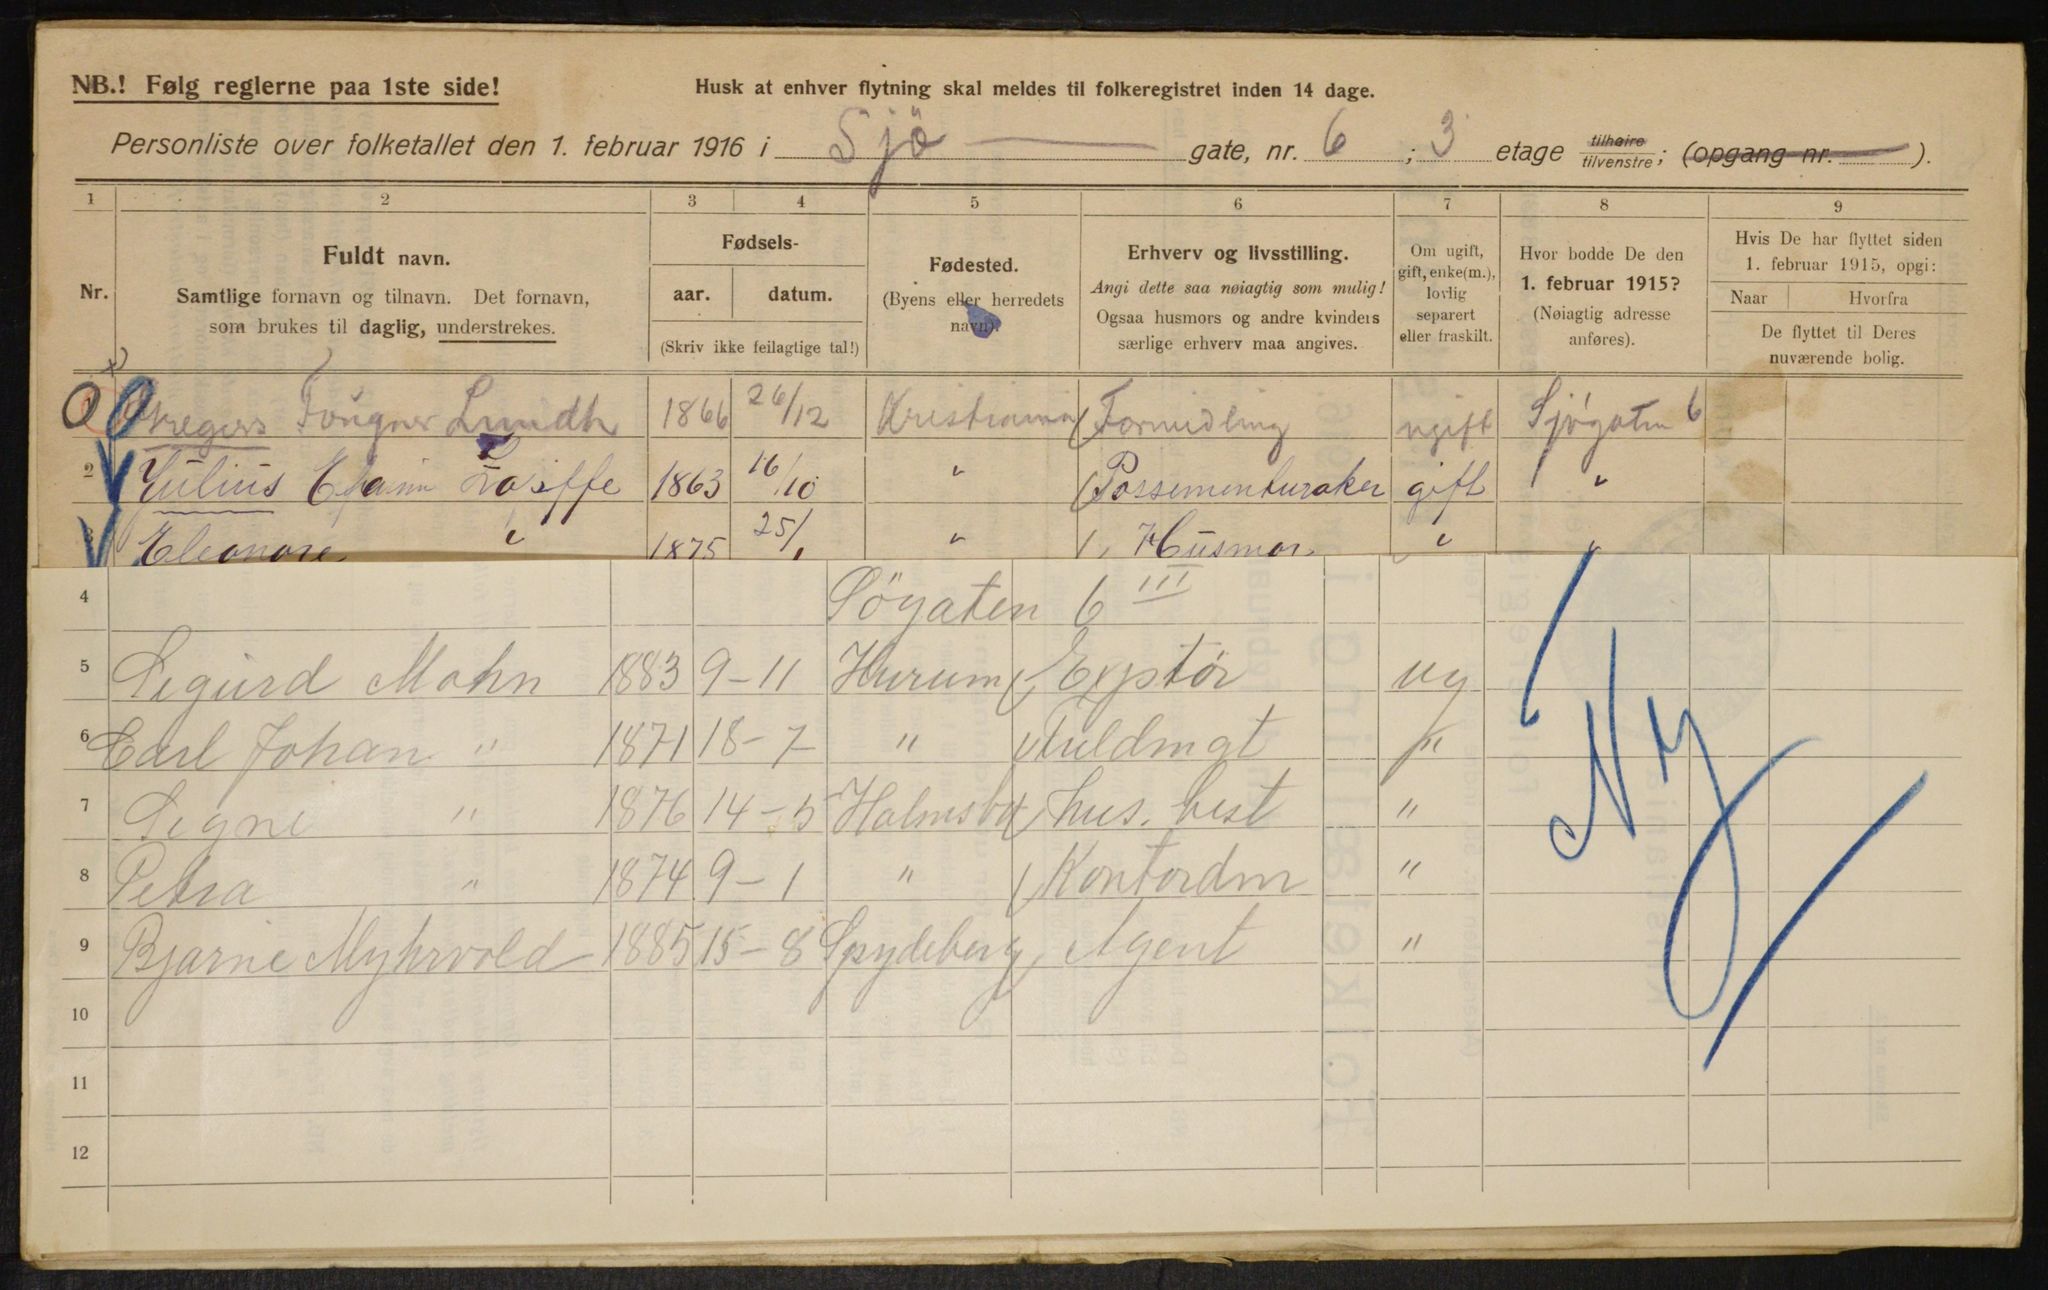 NB.! Følg reglerne paa 1ste side!
Husk at enhver flytning skal meldes til folkeregistret inden 14 dage.
Personliste over folketallet den 1. februar 1916 i Sjö gate, nr. 6 ; 3 etage tilhøire tilvenstre; (opgang nr. ).
1 2 3 4 5 6 7 8 9
Nr.
Fuldt navn.
Samtlige fornavn og tilnavn. Det fornavn,
som brukes til daglig, understrekes.
Fødsels-
aar. datum.
(Skriv ikke feilagtige tal!)
Fødested.
(Byens eller herredets
navn).
Erhverv og livsstilling.
Angi dette saa nøiagtig som mulig!
Ogsaa husmors og andre kvinders
særlige erhverv maa angives.
Om ugift,
gift, enke(m.),
lovlig
separert
eller fraskilt.
Hvor bodde De den
1. februar 1915?
(Nøiagtig adresse
anføres).
Hvis De har flyttet siden
1. februar 1915, opgi:
Naar Hvorfra
De flyttet til Deres
nuværende bolig.
Fougner Lundh 1866 26/12 Kristiania Formidling ugift Sjøgaten 6
2 Julius 1863 16/10 " Possementmaker gift "
3 Eleonore " 1875 25/1 " Husmor " "
4 Søgaten 6 III
5 Sigurd Mohn 1883 9-11 Hurum Exptör ug
6 Carl Johan " 1871 18-7 " Fuldmgt "
7 Signe " 1876 14-5 Holmsbo hus. best "
8 Petra " 1874 9-1 " Kontordm "
9 Bjarne Myhrvold 1885 15-8 Spydeberg Agent "
Ny
10
11
12